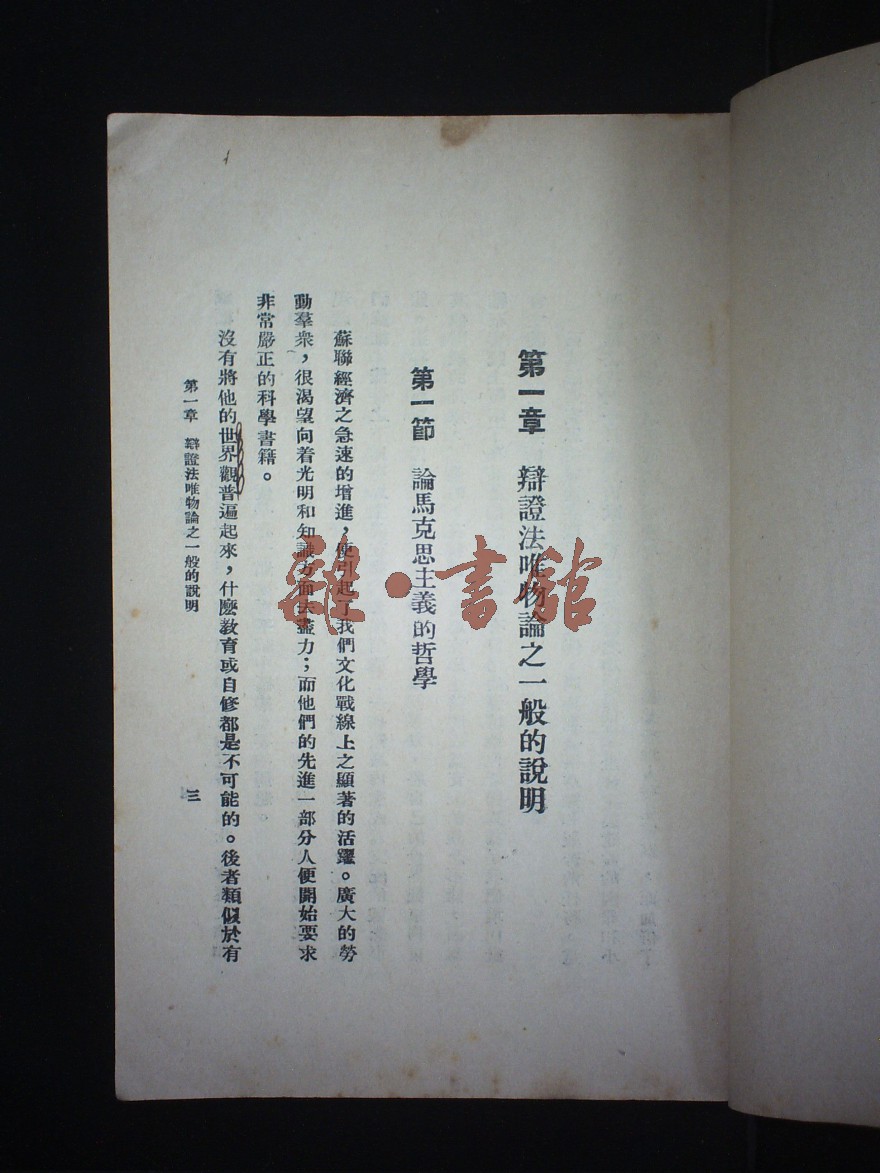 第一章 辯證法唯物論之一般的說明
第一節 論馬克思主義的哲學
蘇聯經濟之急速的增進，便引起了我們文化戰線上之顯著的活躍。廣大的勞
動羣衆，很渴望向着光明和知識方面去盡力；而他們的先進一部分人便開始要求
非常嚴正的科學書籍。
沒有將他的世界觀普遍起來，什麽教育或自修都是不可能的。後者類似於有
第一章 辯證法唯物論之一般的說明
三
雜·書館